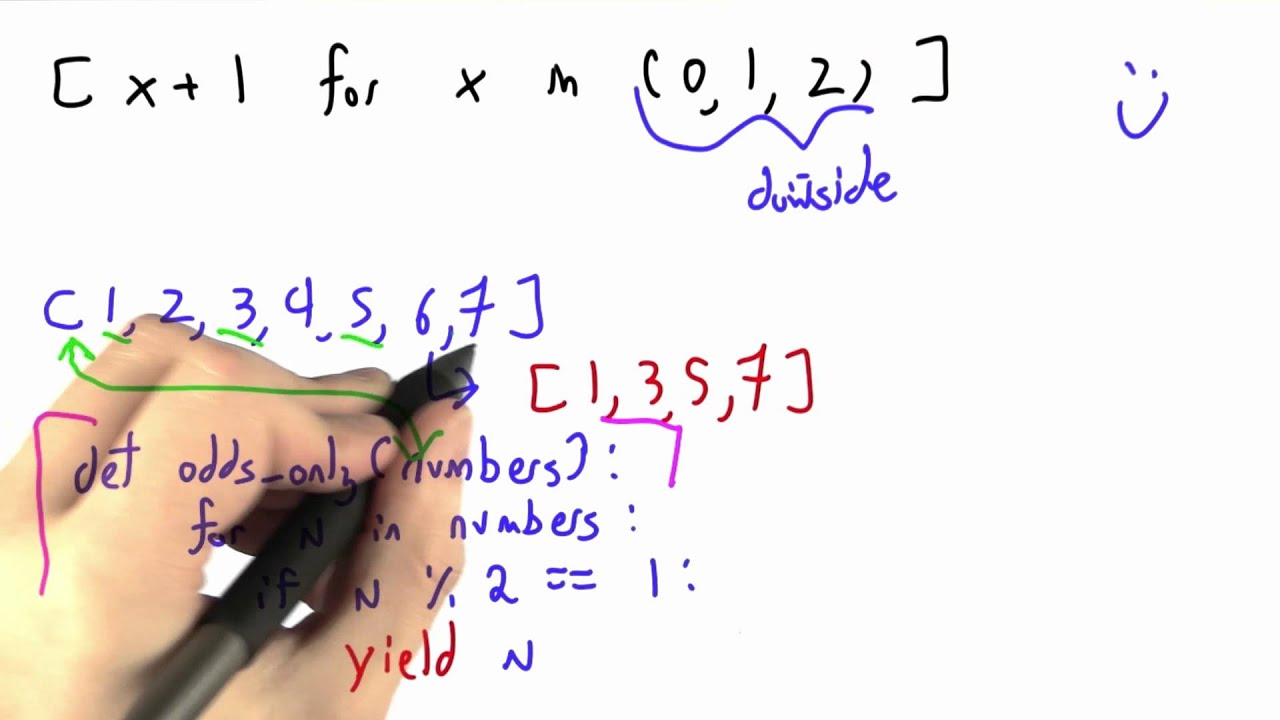 [ x+1 for x in (0,1,2) ]
[ 1, 2, 3, 4, 5, 6, 7 ]
[ 1, 3, 5, 7 ]
def odds_only(numbers):
for N in numbers :
if N % 2 == 1 :
yield N